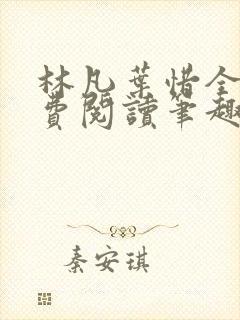 林凡葉惜全
費閱讀筆趣
秦安琪